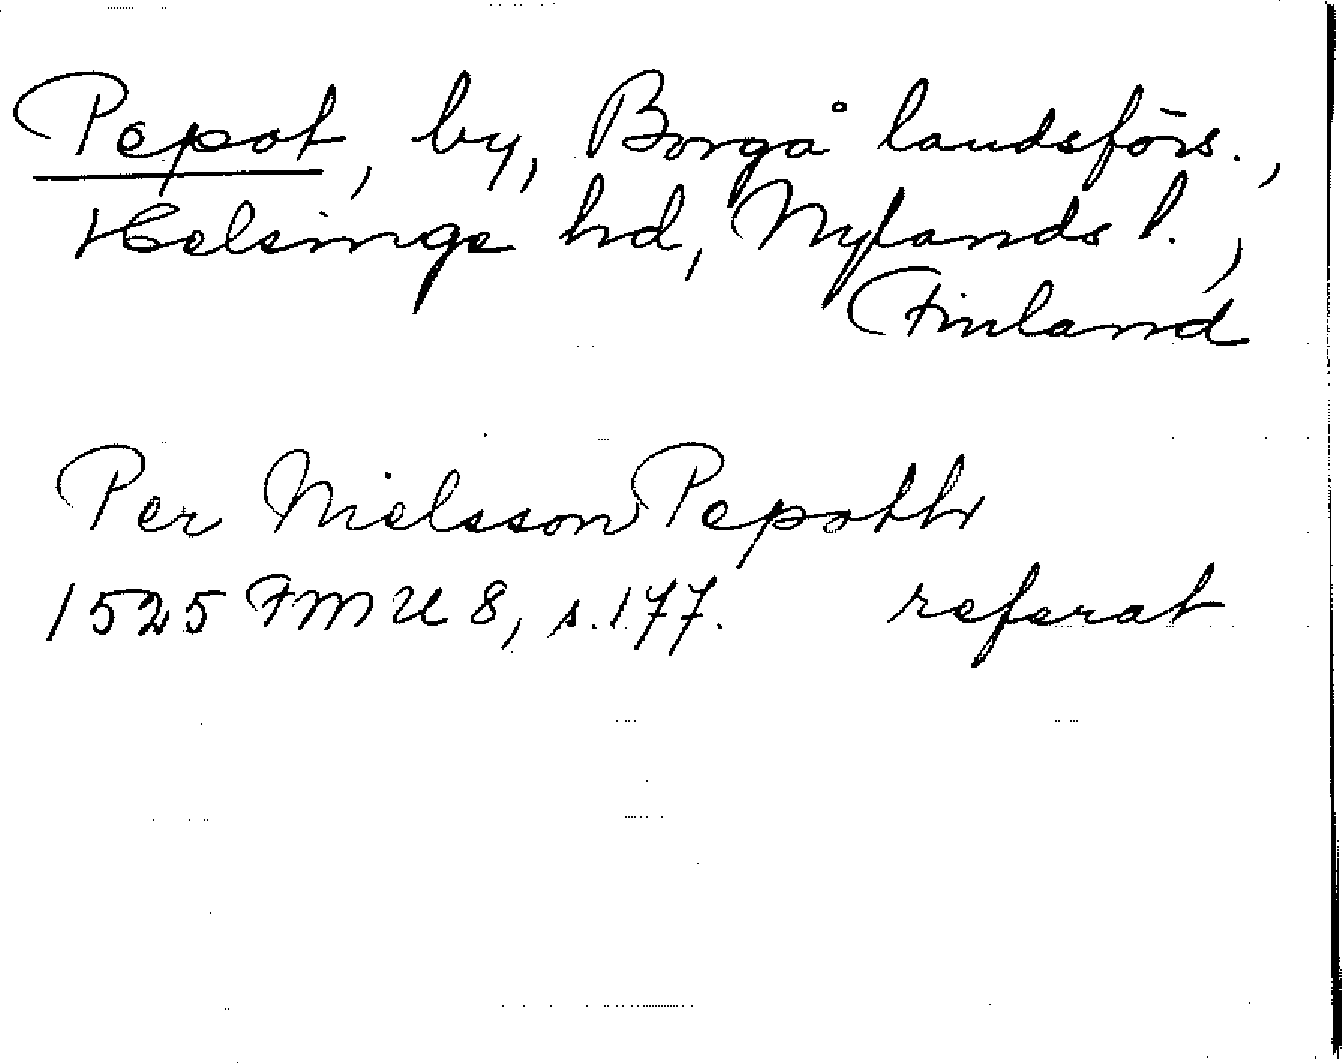 Pepot, by, Borgå landsförs.,
Helsinge hd, Nylands l.,
Finland
Per Nielsson Pepotth
1525 FMU 8, s. 177. referat